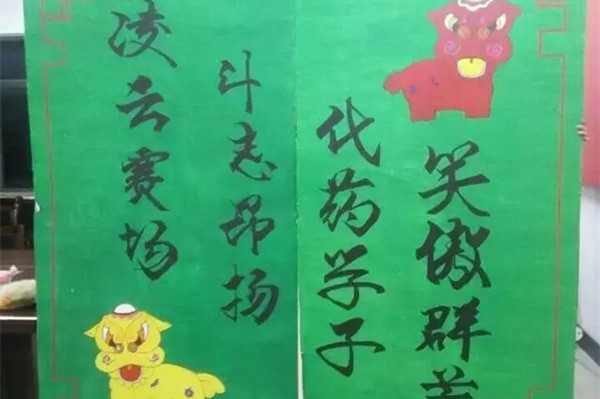 凌云赛场
斗志昂扬
代药学子
笑傲群